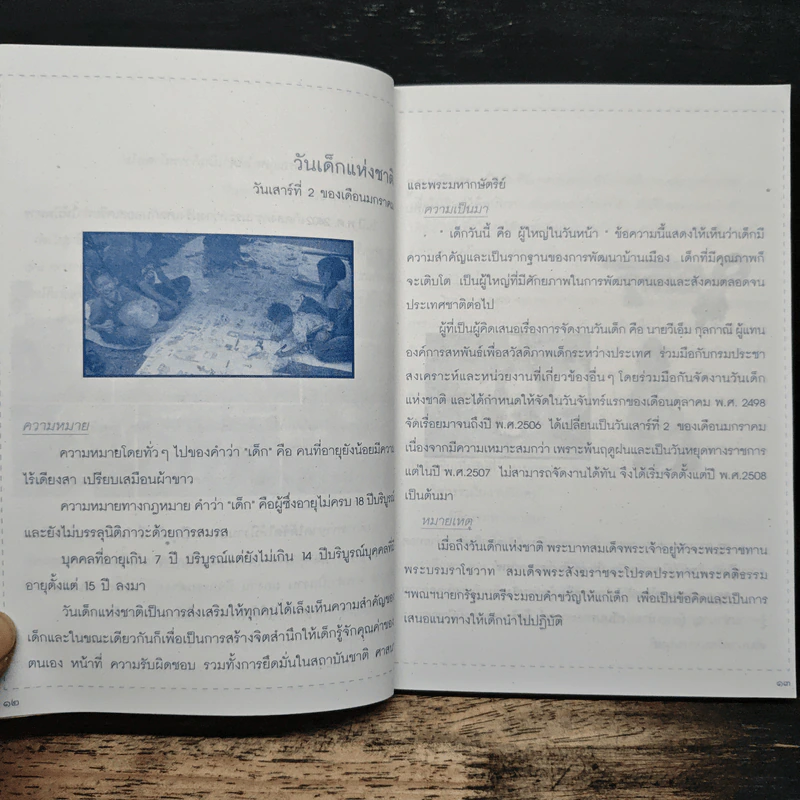 วันเด็กแห่งชาติ
วันเสาร์ที่ 2 ของเดือนมกราคม
ความหมาย
ความหมายโดยทั่วๆ ไปของคำว่า "เด็ก" คือ คนที่อายุยังน้อยมีความ
ไร้เดียงสา เปรียบเสมือนผ้าขาว
ความหมายทางกฎหมาย คำว่า "เด็ก" คือผู้ซึ่งอายุไม่ครบ 18 ปีบริบูรณ์
และยังไม่บรรลุนิติภาวะด้วยการสมรส
บุคคลที่อายุเกิน 7 ปี บริบูรณ์แต่ยังไม่เกิน 14 ปีบริบูรณ์บุคคลที่
อายุตั้งแต่ 15 ปี ลงมา
วันเด็กแห่งชาติเป็นการส่งเสริมให้ทุกคนได้เล็งเห็นความสำคัญของ
เด็กและในขณะเดียวกันก็เพื่อเป็นการสร้างจิตสำนึกให้เด็กรู้จักคุณค่าของ
ตนเอง หน้าที่ ความรับผิดชอบ รวมทั้งการยึดมั่นในสถาบันชาติ ศาสนา
๑๒
และพระมหากษัตริย์
ความเป็นมา
" เด็กวันนี้ คือ ผู้ใหญ่ในวันหน้า " ข้อความนี้แสดงให้เห็นว่าเด็กมี
ความสำคัญและเป็นรากฐานของการพัฒนาบ้านเมือง เด็กที่มีคุณภาพก็
จะเติบโต เป็นผู้ใหญ่ที่มีศักยภาพในการพัฒนาตนเองและสังคมตลอดจน
ประเทศชาติต่อไป
ผู้ที่เป็นผู้คิดเสนอเรื่องการจัดงานวันเด็ก คือ นายวีเอ็ม กุลกาณี ผู้แทน
องค์การสหพันธ์เพื่อสวัสดิภาพเด็กระหว่างประเทศ ร่วมมือกับกรมประชา
สงเคราะห์และหน่วยงานที่เกี่ยวข้องอื่นๆ โดยร่วมมือกันจัดงานวันเด็ก
แห่งชาติ และได้กำหนดให้จัดในวันจันทร์แรกของเดือนตุลาคม พ.ศ. 2498
จัดเรื่อยมาจนถึงปี พ.ศ.2506 ได้เปลี่ยนเป็นวันเสาร์ที่ 2 ของเดือนมกราคม
เนื่องจากมีความเหมาะสมกว่า เพราะพ้นฤดูฝนและเป็นวันหยุดทางราชการ
แต่ในปี พ.ศ.2507 ไม่สามารถจัดงานได้ทัน จึงได้เริ่มจัดตั้งแต่ปี พ.ศ.2508
เป็นต้นมา
หมายเหตุ
เมื่อถึงวันเด็กแห่งชาติ พระบาทสมเด็จพระเจ้าอยู่หัวจะพระราชทาน
พระบรมราโชวาท สมเด็จพระสังฆราชจะโปรดประทานพระคติธรรม
ฯพณฯนายกรัฐมนตรีจะมอบคำขวัญให้แก่เด็ก เพื่อเป็นข้อคิดและเป็นการ
เสนอแนวทางให้เด็กนำไปปฏิบัติ
๑๓